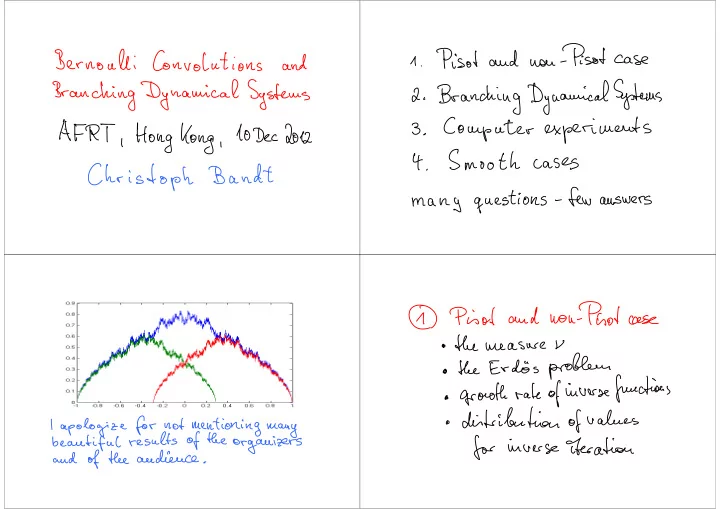 Bernoulli Convolutions and
Branching Dynamical Systems
AFRT, Hong Kong, 10 Dec 2012
Christoph Bandt
1. Pisot and non-Pisot case
2. Branching Dynamical Systems
3. Computer experiments
4. Smooth cases
many questions - few answers
0.9
0.8
0.7
0.6
0.5
0.4
0.3
0.2
0.1
0
-1 -0.8 -0.6 -0.4 -0.2 0 0.2 0.4 0.6 0.8 1
I apologize for not mentioning many
beautiful results of the organizers
and of the audience.
1 Pisot and non-Pisot case
• the measure ν
• the Erdös problem
• growth rate of inverse functions
• distribution of values
for inverse iteration